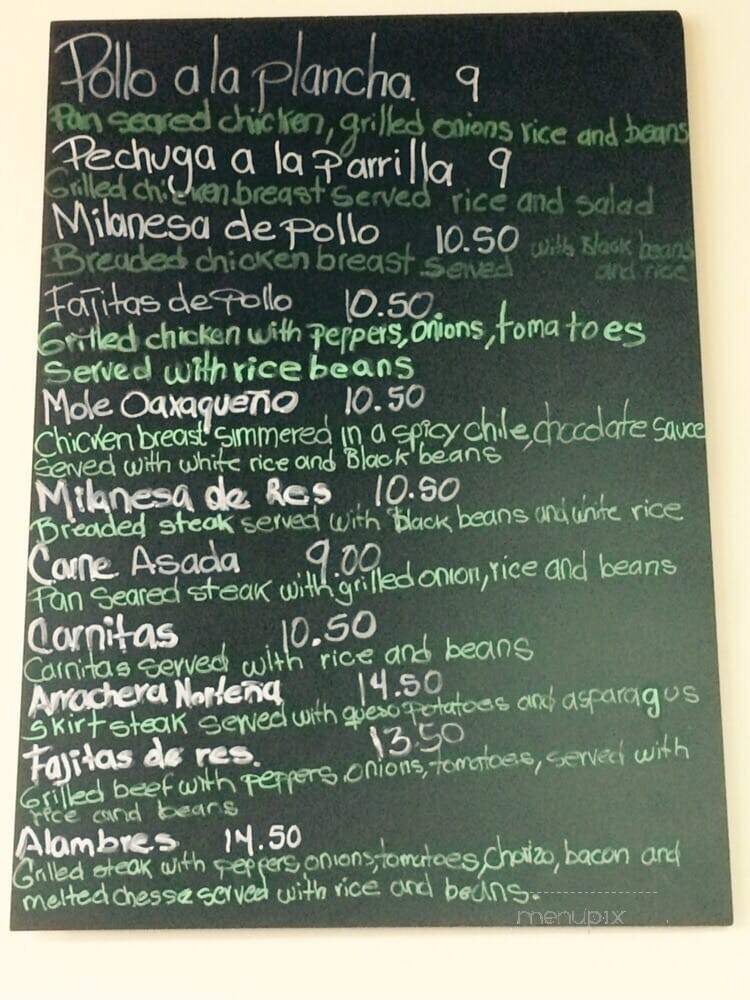 Pollo a la plancha. 9
Pan seared chicken, grilled onions rice and beans
Pechuga a la Parrilla 9
Grilled chicken breast served rice and salad
Milanesa de pollo 10.50
Breaded chicken breast served with Black beans
and rice
Fajitas de Pollo 10.50
Grilled chicken with Peppers, onions, tomatoes
Served with rice beans
Mole Oaxaqueño 10.50
Chicken breast simmered in a spicy chile, chocolate sauce
served with white rice and Black beans
Milanesa de Res 10.50
Breaded steak served with black beans and white rice
Carne Asada 9.00
Pan seared steak with grilled onion, rice and beans
Carnitas 10.50
Carnitas served with rice and beans
Arrachera Norteña 14.50
Skirt steak served with queso potatoes and asparagus
Fajitas de res. 13.50
Grilled beef with peppers, onions, tomatoes, served with
rice and beans
Alambres 14.50
Grilled steak with peppers, onions, tomatoes, chorizo, bacon and
melted chesse served with rice and beans.
menupix